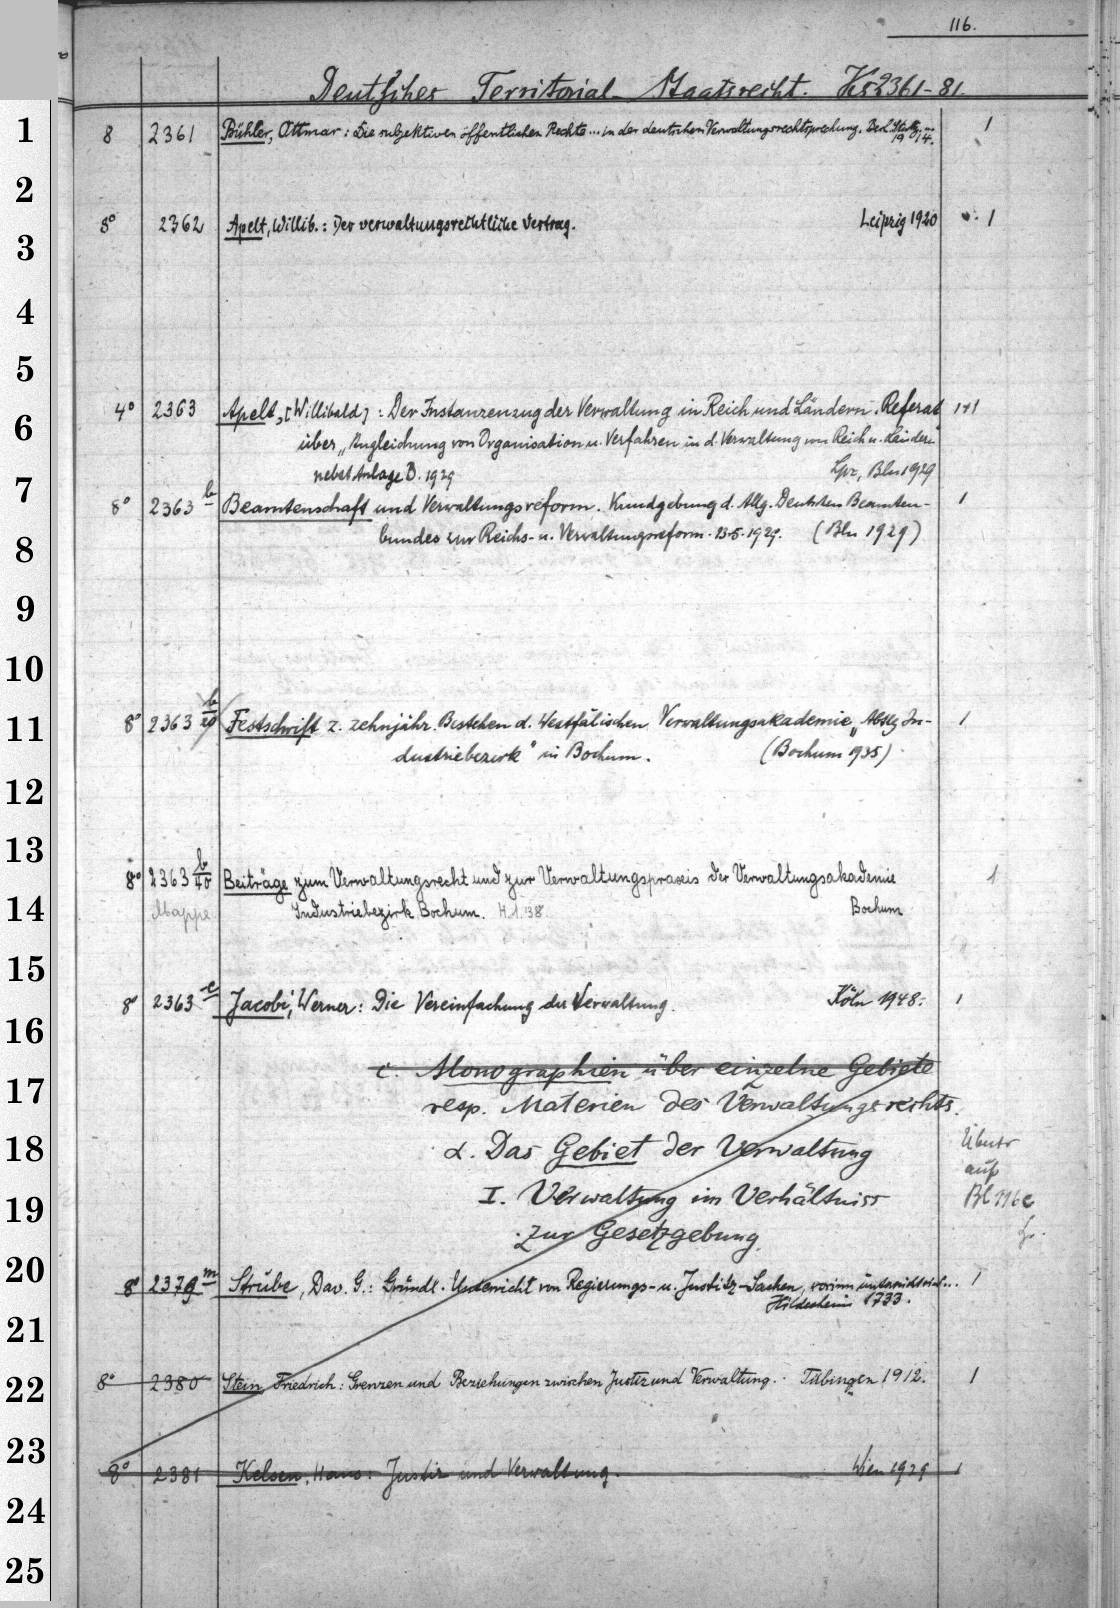 116.
Deutsches Territorial-Staatsrecht. Hs 2361-81.
1
8 2361 Bühler, Ottmar: Die subjektiven öffentlichen Rechte... in der deutschen Verwaltungsrechtsprechung. Berl. Stuttg. ... 1
19 14.
2
8° 2362 Apelt, Willib.: Der verwaltungsrechtliche Vertrag. Leipzig 1920 1
3
4
5
4° 2363 Apelt, [Willibald]: Der Instanzenzug der Verwaltung in Reich und Ländern. Referat 1+1
6
über „Angleichung von Organisation u. Verfahren in d. Verwaltung von Reich u. Ländern"
nebst Anlage B. 1929 Lpz, Bln 1929
7
8° 2363 b Beamtenschaft und Verwaltungsreform. Kundgebung d. Allg. Deutschen Beamten- 1
bundes zur Reichs- u. Verwaltungsreform. 13.5.1929. (Bln 1929)
8
9
10
8° 2363 b/20 Festschrift z. zehnjähr. Bestehen d. Westfälischen Verwaltungsakademie „Abtlg In- 1
11
dustriebezirk" in Bochum. (Bochum 1935)
12
13
8° 2363 b/40 Beiträge zum Verwaltungsrecht und zur Verwaltungspraxis der Verwaltungsakademie 1
14
Mappe Industriebezirk Bochum. H.1.38 Bochum
15
8° 2363 c Jacobi, Werner: Die Vereinfachung der Verwaltung. Köln 1948. 1
16
c. Monographien über einzelne Gebiete
17
resp. Materien des Verwaltungsrechts.
18
α. Das Gebiet der Verwaltung
Übertr
auf
19
I. Verwaltung im Verhältniss
Bl 116c
zur Gesetzgebung.
20
8° 2379 m Strube, Dav. G.: Gründl. Unterricht von Regierungs- u. Justitz-Sachen, worinn untersucht wird... 1
Hildesheim 1733.
21
22
8° 2380 Stein, Friedrich: Grenzen und Beziehungen zwischen Justiz und Verwaltung. Tübingen 1912. 1
23
8° 2381 Kelsen, Hans: Justiz und Verwaltung. Wien 1929 1
24
25